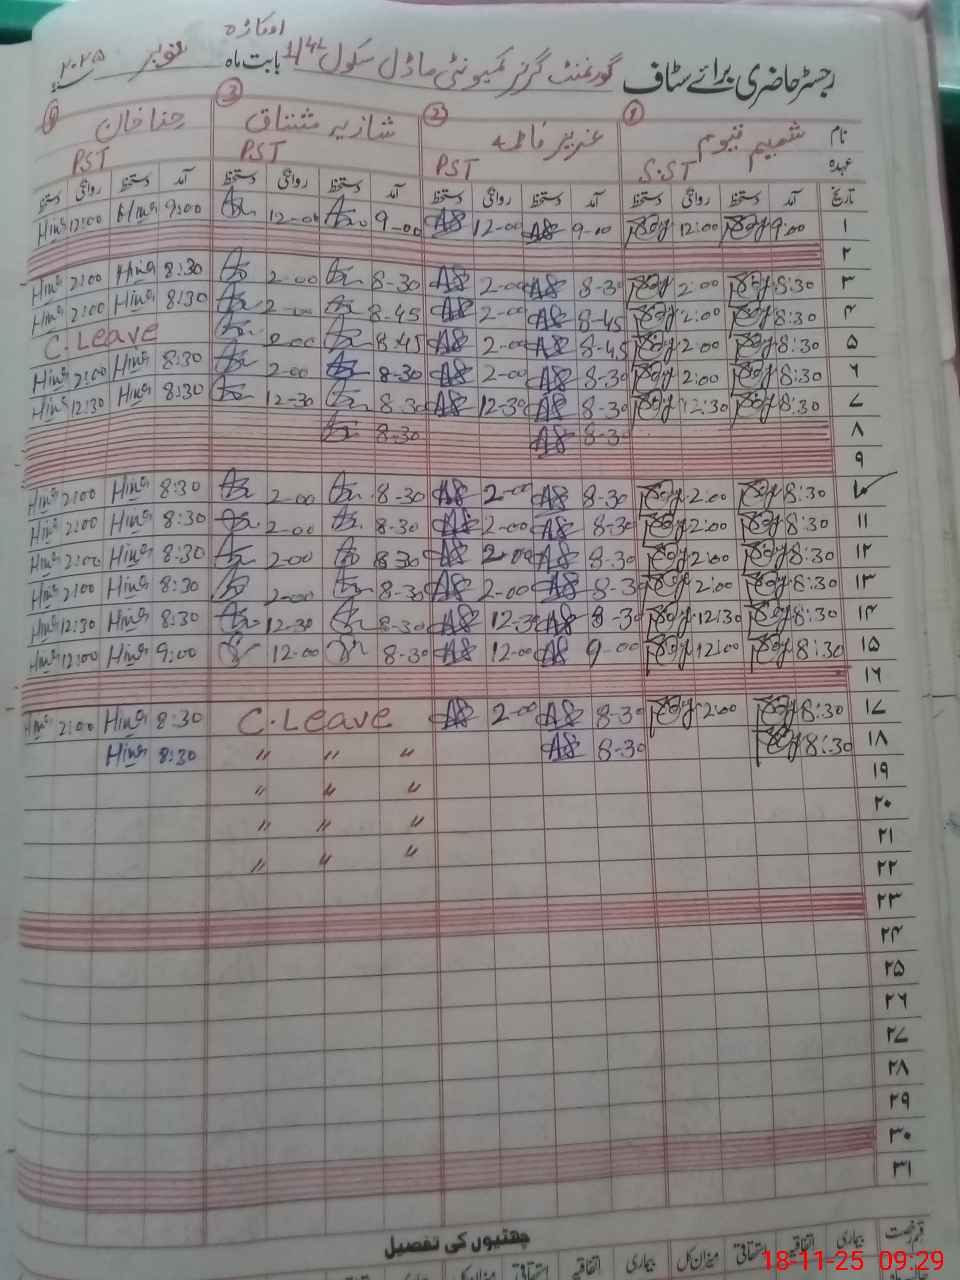 اوکاڑہ
رجسٹر حاضری برائے سٹاف گورنمنٹ گرلز کمیونٹی ماڈل سکول 1/4L بابت ماہ نومبر ۲۰۲۵ء
نام ① شمیم قیوم ② عزیز فاطمہ ③ شازیہ مشتاق ④ حنا خان
عہدہ S.ST PST P.ST PST
تاریخ آمد دستخط روانگی دستخط آمد دستخط روانگی دستخط آمد دستخط روانگی دستخط آمد دستخط روانگی دستخط
۱ 9:00 12:00 9-00 AS 12-00 AS 9-00 12-00 9:00 Hina 12:00 Hina
۲
۳ 8:30 2:00 8-30 AS 2-00 AS 8-30 2-00 8:30 Hina 2:00 Hina
۴ 8:30 2:00 8-45 AS 2-00 AS 8-45 2-00 8:30 Hina 2:00 Hina
۵ 8:30 2:00 8-45 AS 2-00 AS 8:45 2-00 C.Leave
۶ 8:30 2:00 8-30 AS 2-00 AS 8-30 2-00 8:30 Hina 2:00 Hina
۷ 8:30 12:30 8-30 AS 12-30 AS 8-30 12-30 8:30 Hina 12:30 Hina
۸ 8-30 AS 8-30
۹
۱۰ 8:30 2:00 8-30 AS 2-00 AS 8-30 2-00 8:30 Hina 2:00 Hina
۱۱ 8:30 2:00 8-30 AS 2-00 AS 8-30 2-00 8:30 Hina 2:00 Hina
۱۲ 8:30 2:00 8-30 AS 2-00 AS 8-30 2-00 8:30 Hina 2:00 Hina
۱۳ 8:30 2:00 8-30 AS 2-00 AS 8-30 2-00 8:30 Hina 2:00 Hina
۱۴ 8:30 12:30 8-30 AS 12-30 AS 8-30 12-30 8:30 Hina 12:30 Hina
۱۵ 8:30 12:00 9-00 AS 12-00 AS 8-30 12-00 9:00 Hina 12:00 Hina
۱۶
۱۷ 8:30 2:00 8-30 AS 2-00 AS C.Leave 8:30 Hina 2:00 Hina
۱۸ 8:30 8-30 AS " " " 8:30 Hina
۱۹ " " "
۲۰ " " "
۲۱ " " "
۲۲
۲۳
۲۴
۲۵
۲۶
۲۷
۲۸
۲۹
۳۰
۳۱
چھٹیوں کی تفصیل
قسم رخصت بیماری اتفاقیہ استحقاقی میزان کل بیماری اتفاقیہ استحقاقی میزان کل بیماری اتفاقیہ استحقاقی
18-11-25 09:29